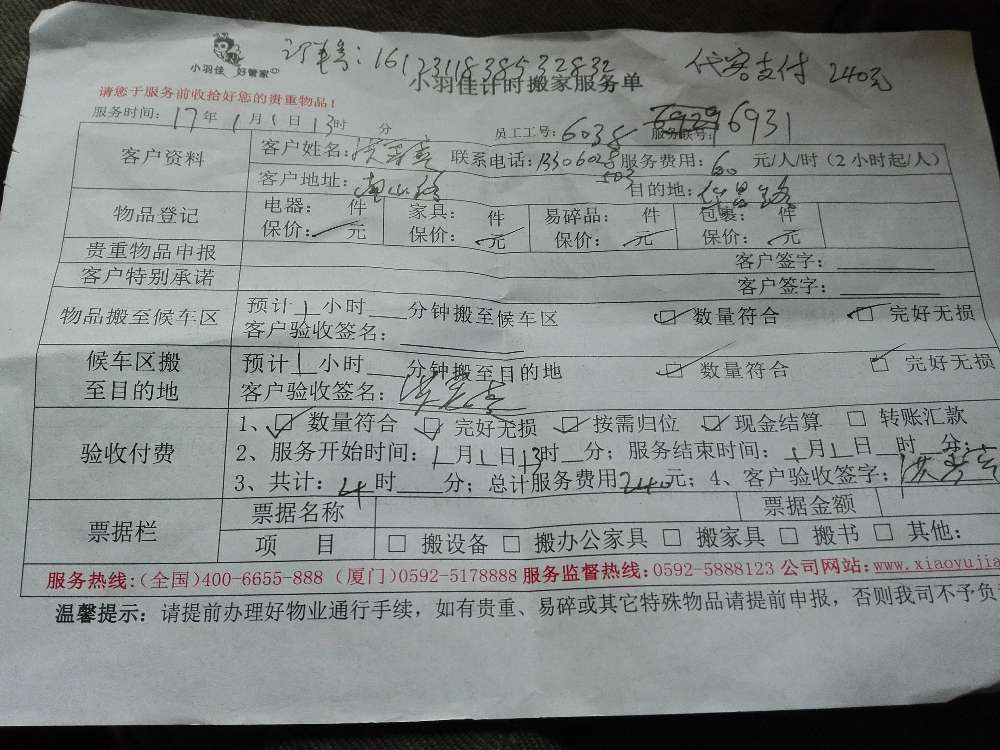 小羽佳 好管家
订单号:1612311838532832
代客支付 240元
小羽佳计时搬家服务单
请您于服务前收拾好您的贵重物品!
服务时间:17年1月1日13时 分
员工工号:6035 服务账号: 6931
客户资料
客户姓名: 联系电话:13306028503 服务费用:60元/人/时(2小时起/人)
客户地址: 目的地:
物品登记
电器: 件 家具: 件 易碎品: 件 包裹: 件
保价: 元 保价: 元 保价: 元 保价: 元
贵重物品申报 客户签字:
客户特别承诺 客户签字:
物品搬至候车区
预计1小时 分钟搬至候车区 ☑ 数量符合 ☑ 完好无损
客户验收签名:
候车区搬至目的地
预计1小时 分钟搬至目的地 ☑ 数量符合 ☑ 完好无损
客户验收签名:
验收付费
1、☑ 数量符合 ☑ 完好无损 ☑ 按需归位 ☑ 现金结算 □ 转账汇款
2、服务开始时间:1月1日13时 分;服务结束时间:1月1日 时 分;
3、共计:4时 分;总计服务费用240元;4、客户验收签字:
票据栏
票据名称 票据金额
项 目 □ 搬设备 □ 搬办公家具 □ 搬家具 □ 搬书 □ 其他:
服务热线:(全国)400-6655-888 (厦门)0592-5178888 服务监督热线:0592-5888123 公司网站:www.xiaoyujia
温馨提示:请提前办理好物业通行手续,如有贵重、易碎或其它特殊物品请提前申报,否则我司不予负